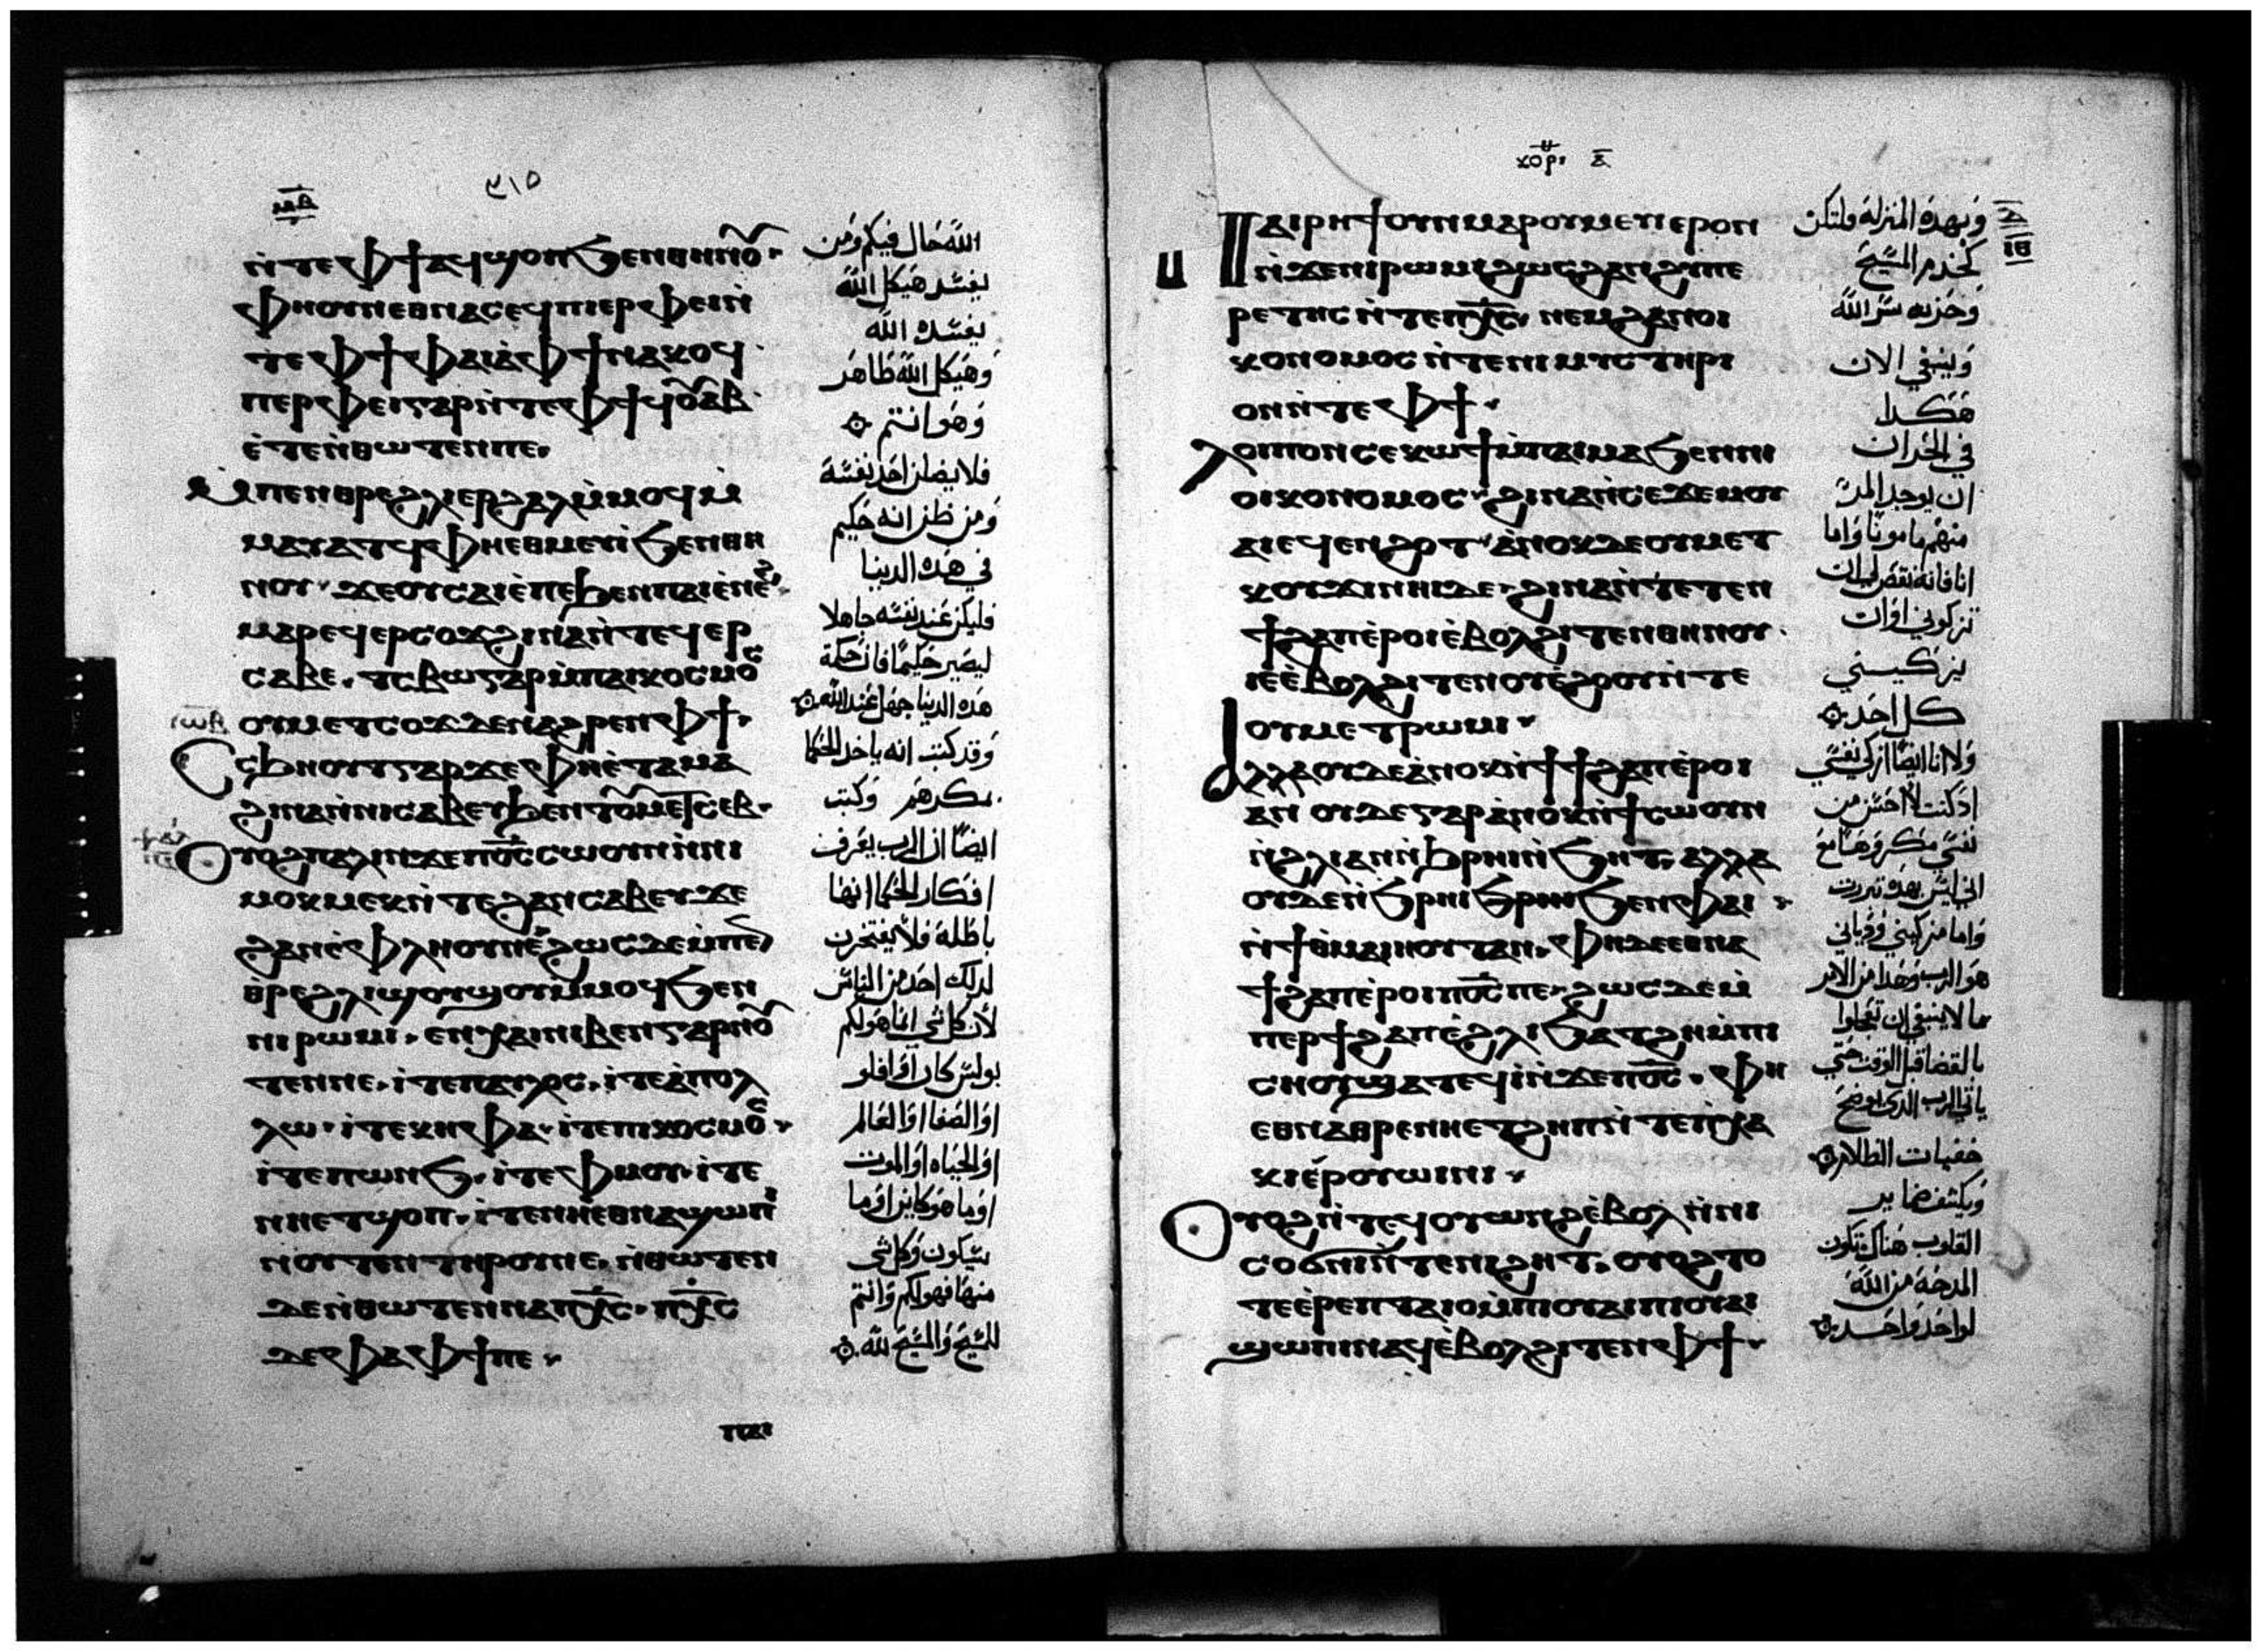 ⲙⲃ
ⲛ̀ⲧⲉⲫϯⲁϥϣⲟⲡϧⲉⲛⲑⲏⲛⲟⲩ·
ⲫⲏⲟⲩⲛⲉⲑⲛⲁⲥⲉϥⲡⲓⲉⲣⲫⲉⲓⲛ̀
ⲧⲉⲫϯⲫⲁⲓⲁ̀ⲫϯⲛⲁⲕⲟϥ
ⲡⲉⲣⲫⲉⲓⲅⲁⲣⲛ̀ⲧⲉⲫϯϥⲟⲩⲁⲃ
ⲉ̀ⲧⲉⲛ̀ⲑⲱⲧⲉⲛⲡⲉ·
ⲙ̀ⲡⲉⲛⲑⲣⲉϩⲗⲓⲉⲣϩⲁⲗⲙ̀ⲙⲟϥⲙ̀
ⲙⲁⲩⲁⲧϥⲫⲏⲉⲑⲙⲉⲩⲓ̀ϧⲉⲛⲑⲏ
ⲛⲟⲩ·ϫⲉⲟⲩⲥⲁⲃⲉ̀ⲡⲉϧⲉⲛⲡⲁⲓⲉ̀ⲛⲉϩ
ⲙⲁⲣⲉϥⲉⲣⲥⲟϫϩⲓⲛⲁⲛ̀ⲧⲉϥⲉⲣ
ⲥⲁⲃⲉ·ⲧⲥⲃⲱⲅⲁⲣⲙ̀ⲡⲁⲓⲕⲟⲥⲙⲟⲥ
ⲟⲩⲙⲉⲧⲥⲟϫⲧⲉⲛⲁϩⲣⲉⲛⲫϯ·
ⲥⲥϧⲏⲟⲩⲧⲅⲁⲣϫⲉⲫⲏⲉ̀ⲧⲁⲙⲁ
ϩⲓⲛⲁⲛ̀ⲛⲓⲥⲁⲃⲉⲩϧⲉⲛⲧⲟⲩⲙⲉⲧⲥⲉⲃ·
ⲟⲩⲟϩⲡⲁⲗⲓⲛϫⲉⲡⲟ̅ⲥ̅ⲥⲱⲟⲩⲛⲛ̀ⲛⲓ
ⲙⲟⲕⲙⲉⲕⲛ̀ⲧⲉϩⲁⲛⲥⲁⲃⲉⲩϫⲉ
ϩⲁⲛⲉ̀ⲫⲗⲏⲟⲩⲛⲉ̀ϩⲱⲥⲇⲉⲙ̀ⲡⲉⲛ
ⲑⲣⲉϩⲗⲓϣⲟⲩϣⲟⲩⲙ̀ⲙⲟϥϧⲉⲛ
ⲛⲓⲣⲱⲙⲓ·ⲉⲛⲭⲁⲓⲛⲓⲃⲉⲛⲅⲁⲣⲛⲟⲩ
ⲧⲉⲛⲛⲉ·ⲓ̀ⲧⲉⲡⲁⲩⲗⲟⲥ·ⲓ̀ⲧⲉⲁ̀ⲡⲟⲗ
ⲗⲱ·ⲓ̀ⲧⲉⲕⲏⲫⲁ·ⲓ̀ⲧⲉⲡⲓⲕⲟⲥⲙⲟⲥ·
ⲓ̀ⲧⲉⲡⲱⲛϧ·ⲓ̀ⲧⲉⲫⲙⲟⲩ·ⲓ̀ⲧⲉ
ⲛⲏⲉⲧϣⲟⲡ·ⲓ̀ⲧⲉⲛⲏⲉ̀ⲑⲛⲁϣⲱⲡⲓ
ⲛⲟⲩⲧⲉⲛⲧⲏⲣⲟⲩⲛⲉ·ⲛ̀ⲑⲱⲧⲉⲛ
ⲇⲉⲛ̀ⲑⲱⲧⲉⲛⲛⲁⲡⲭ̅ⲥ̅·ⲡⲭ̅ⲥ̅
ⲇⲉⲫⲁⲫϯⲡⲉ·
ⲡⲁⲓ
الله حال فيكم ومن
يفسد هيكل الله
يفسده الله
وهيكل الله طاهر
وهو انتم
فلا يضلن احد نفسه
ومن ظن انه حكيم
في هذه الدنيا
فليكن عند نفسه جاهلا
ليصير حكيما فان حكمة
هذه الدنيا جهل عند الله
وقد كتب انه ياخد الحكما
بمكرهم وكتب
ايضا ان الرب يعرف
افكار الحكما انها
باطله فلا يفتخرن
لدلك احد من الناس
لان كل شي انما هو لكم
بولس كان او افلو
او الصفا او العالم
او الحياه او الموت
او ما هو كاين او ما
سيكون وكل شي
منها فهو لكم وانتم
للمسيح والمسيح لله
ⲕⲟⲣ· ⲁ̅
ⲡⲁⲓⲣⲏϯⲟⲩⲛⲙⲁⲣⲟⲩⲙⲉⲩⲓⲉⲣⲟⲛ
ⲛ̀ϫⲉⲛⲓⲣⲱⲙⲓϩⲱⲥϩⲁⲛϩⲩⲡⲉ
ⲣⲉⲧⲏⲥⲛ̀ⲧⲉⲡⲭ̅ⲥ̅·ⲛⲉⲙϩⲁⲛⲟⲓ
ⲕⲟⲛⲟⲙⲟⲥⲛ̀ⲧⲉⲛⲓⲙⲩⲥⲧⲏⲣⲓ
ⲟⲛⲛ̀ⲧⲉⲫϯ·
ⲗⲟⲓⲡⲟⲛⲥⲉⲕⲱϯⲙ̀ⲡⲁⲓⲙⲁϧⲉⲛⲛⲓ
ⲟⲓⲕⲟⲛⲟⲙⲟⲥ·ϩⲓⲛⲁⲛ̀ⲥⲉϫⲉⲙⲟⲩ
ⲁⲓⲉϥⲉⲛϩⲟⲧ·ⲁ̀ⲛⲟⲕⲇⲉⲟⲩⲙⲉⲧ
ⲕⲟⲩϫⲓⲛⲏⲓⲇⲉ·ϩⲓⲛⲁⲛ̀ⲧⲉⲧⲉⲛ
ϯϩⲁⲡⲉ̀ⲣⲟⲓⲉ̀ⲃⲟⲗϩⲓⲧⲉⲛⲑⲏⲛⲟⲩ·
ⲓⲉⲉ̀ⲃⲟⲗϩⲓⲧⲉⲛⲟⲩⲉ̀ϩⲟⲟⲩⲛ̀ⲧⲉ
ⲟⲩⲙⲉⲧⲣⲱⲙⲓ·
ⲁⲗⲗⲁⲟⲩⲇⲉⲁ̀ⲛⲟⲕⲛ̀ϯϯϩⲁⲡⲉ̀ⲣⲟⲓ
ⲁⲛ ⲟⲩⲇⲉⲅⲁⲣⲁ̀ⲛⲟⲕⲛ̀ϯⲥⲱⲟⲩⲛ
ⲛ̀ϩⲗⲓⲁⲛⲛ̀ϧⲣⲏⲓⲛ̀ϧⲏⲧ·ⲁⲗⲗⲁ
ⲟⲩⲇⲉⲛ̀ϧⲣⲏⲓϧⲣⲏⲓϧⲉⲛⲫⲁⲓ·
ⲛ̀ϯⲑⲙⲁⲓⲏⲟⲩⲧⲁⲛ·ⲫⲏⲇⲉⲉⲑⲛⲁ
ϯϩⲁⲡⲉ̀ⲣⲟⲓⲡⲟ̅ⲥ̅ⲡⲉ·ϩⲱⲥⲇⲉⲙ̀
ⲡⲉⲣϯϩⲁⲡⲉ̀ϩⲗⲓϧⲁⲧϩⲏⲙ̀ⲡⲓ
ⲥⲏⲟⲩϣⲁⲧⲉϥⲓ̀ⲛ̀ϫⲉⲡⲟ̅ⲥ̅·ⲫⲏ
ⲉⲑⲛⲁⲑⲣⲉⲛⲏⲉⲧϩⲏⲡⲛ̀ⲧⲉⲡⲭⲁ
ⲕⲓⲉ̀ⲣⲟⲩⲱⲓⲛⲓ·
ⲟⲩⲟϩⲛ̀ⲧⲉϥⲟⲩⲱⲛϩⲉ̀ⲃⲟⲗⲛ̀ⲛⲓ
ⲥⲟϭⲛⲓⲛ̀ⲧⲉⲛⲓϩⲏⲧ·ⲟⲩⲟϩⲧⲟ
ⲧⲉⲉ̀ⲣⲉⲡⲧⲁⲓⲟⲙ̀ⲡⲓⲟⲩⲁⲓⲡⲓⲟⲩⲁⲓ
ϣⲱⲡⲓⲛⲁϥⲉ̀ⲃⲟⲗϩⲓⲧⲉⲛⲫϯ·
وبهذه المنزلة ولتكن
كخدم المسيح
وخزنه سر الله
وينبغي الان
هكدا
في الخزان
ان يوجد المر
منهم مامونا واما
انا فانه نقص لي ان
تزكوني او ان
يزكيني
كل احد
ولا انا ايضا ازكي نفسي
اد كنت لا احس من
نفسي مكروها مع
اني ليس بهده تبررت
واما مزكيني
هو الرب وهدا من الامر
ما لا ينبغي ان تعجلوا
بالقضا قبل الوقت حتي
ياتي الرب الدي يوضح
خفيات الظلام
ويكشف ضماير
القلوب هناك تكون
المدحة من الله
لواحد واحد